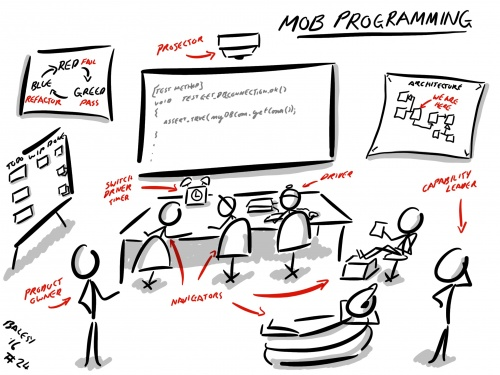 MOB PROGRAMMING
PROJECTOR
RED FAIL
BLUE
GREED
REFACTOR
PASS
[TEST METHOD]
void TEST.GET_DBCONNECTION.OK()
{
ASSERT.TRUE(myDBConn.getConn());
}
ARCHITECTURE
WE ARE
HERE
TODO WIP DONE
SWITCH
DRIVER
TIMER
DRIVER
CAPABILITY
LEADER
PRODUCT
OWNER
NAVIGATORS
BALESY
'16
#24